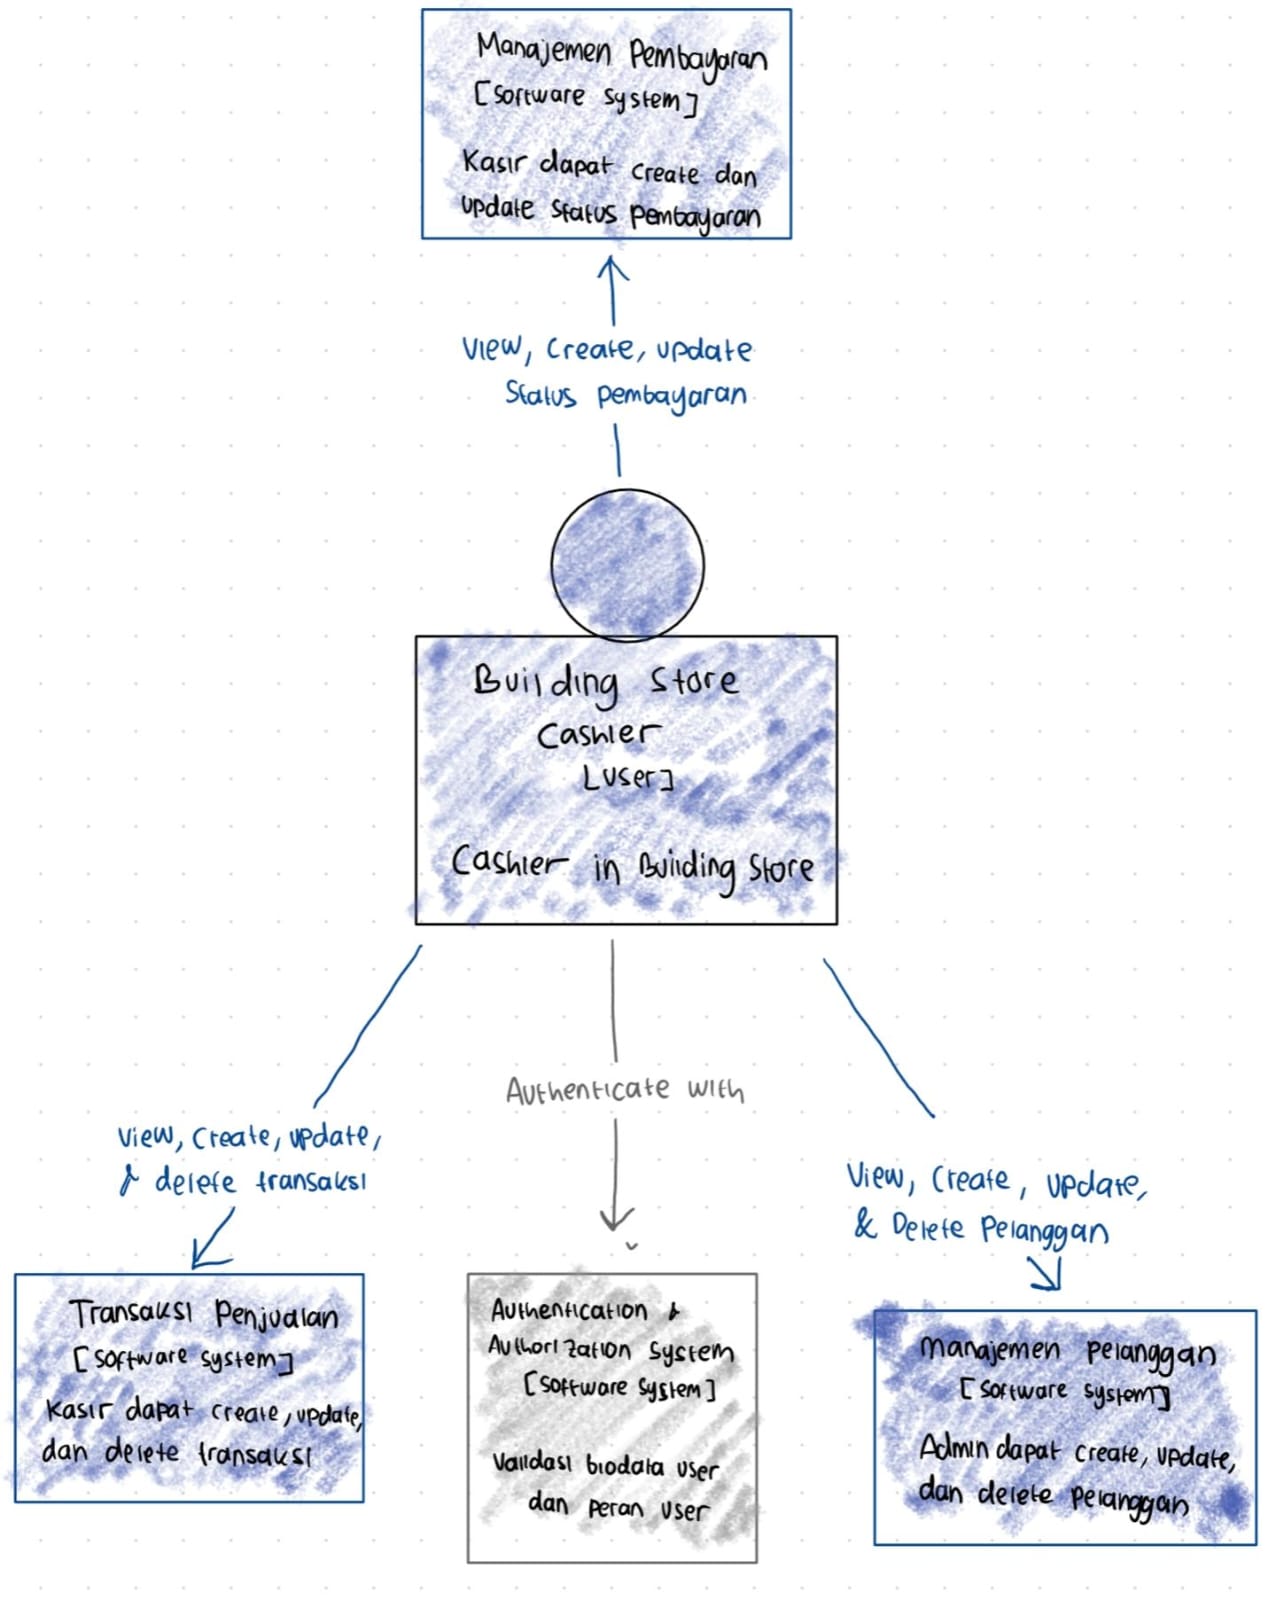 Manajemen Pembayaran
[Software System]
Kasir dapat create dan
update status pembayaran
View, Create, update
Status pembayaran
Building Store
Cashier
[User]
Cashier in Building Store
View, Create, update,
& delete transaksi
Authenticate with
View, Create, Update,
& Delete Pelanggan
Transaksi Penjualan
[Software System]
Kasir dapat create, update,
dan delete transaksi
Authentication &
Authorization System
[Software System]
Validasi biodata user
dan peran user
Manajemen pelanggan
[Software System]
Admin dapat create, update,
dan delete pelanggan